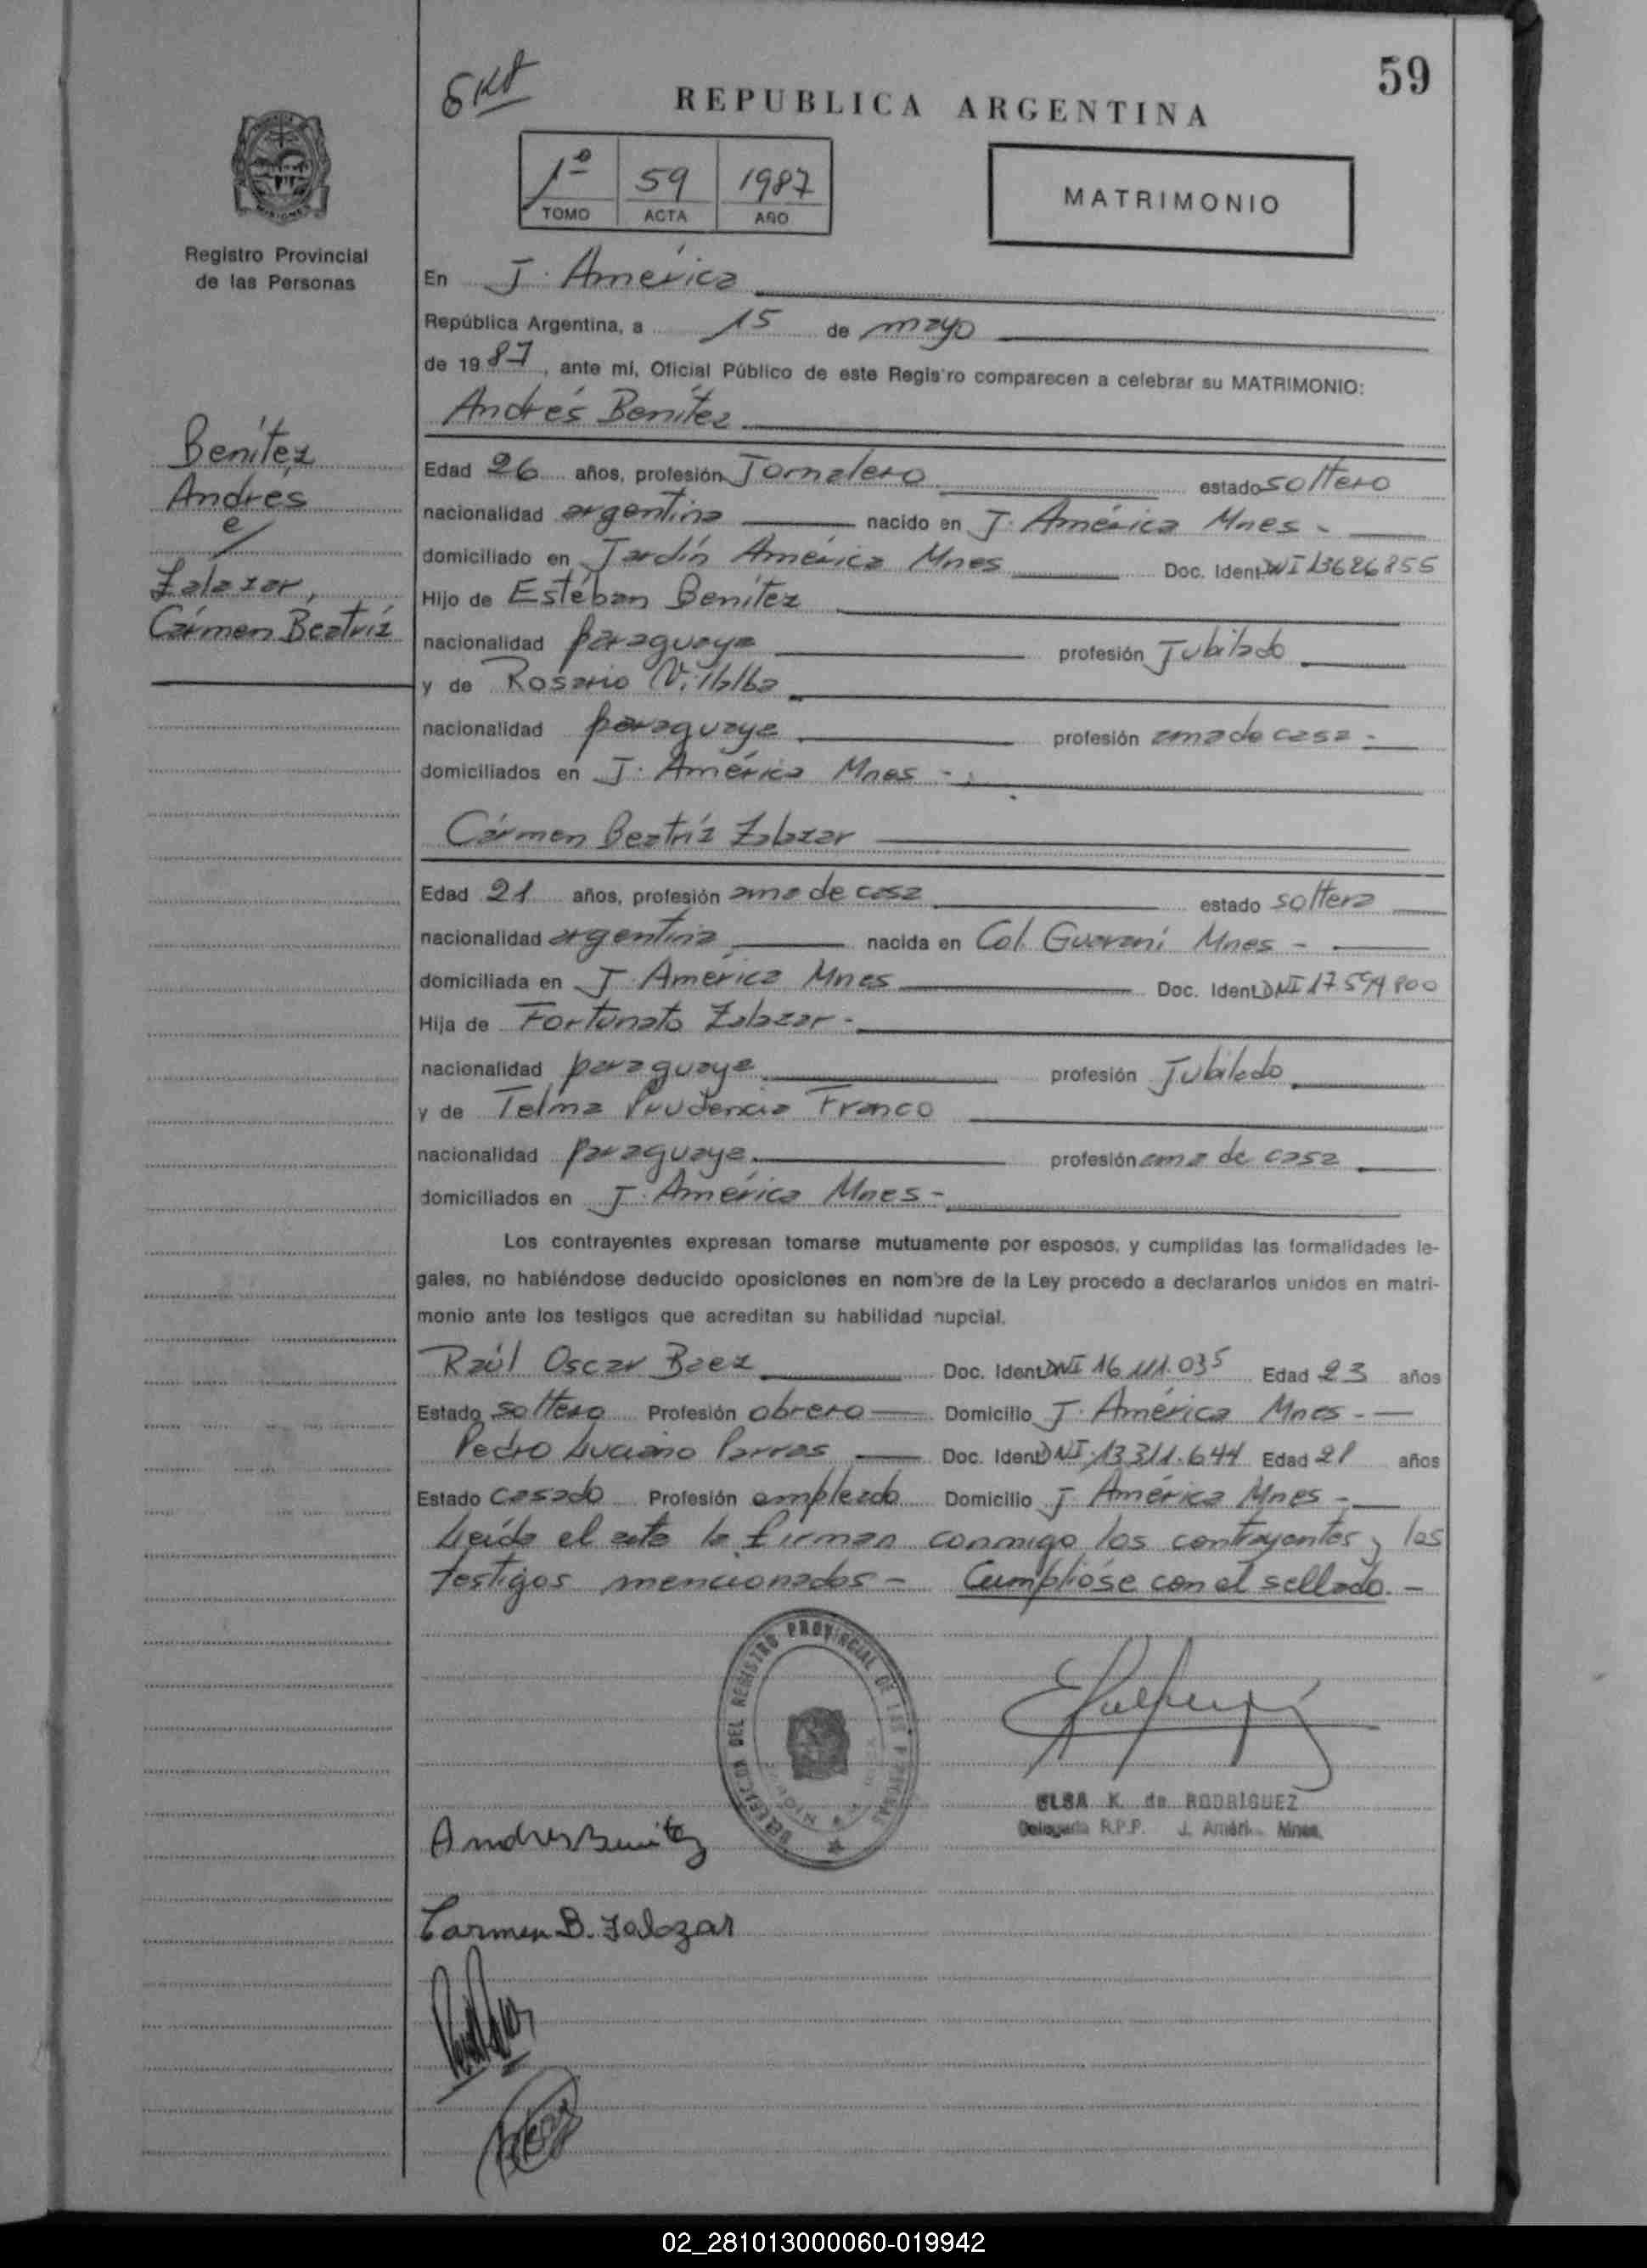 59
REPUBLICA ARGENTINA
1º 59 1987
TOMO ACTA AÑO
MATRIMONIO
Registro Provincial
de las Personas
Benítez
Andrés
e/
Zalazar,
Cármen Beatríz
En J. América
República Argentina, a 15 de mayo
de 1987, ante mí, Oficial Público de este Registro comparecen a celebrar su MATRIMONIO:
Andrés Benítez
Edad 26 años, profesión Jornalero estado soltero
nacionalidad argentina nacido en J. América Mnes -
domiciliado en Jardín América Mnes Doc. Ident. DNI 13626855
Hijo de Estéban Benítez
nacionalidad paraguaya profesión Jubilado
y de Rosario Villalba
nacionalidad paraguaya profesión ama de casa -
domiciliados en J. América Mnes -
Cármen Beatríz Zalazar
Edad 21 años, profesión ama de casa estado soltera
nacionalidad argentina nacida en Col. Guaraní Mnes -
domiciliada en J. América Mnes Doc. Ident. DNI 17.594.800
Hija de Fortunato Zalazar -
nacionalidad paraguaya profesión Jubilado
y de Telma Prudencia Franco
nacionalidad paraguaya profesión ama de casa
domiciliados en J. América Mnes -
Los contrayentes expresan tomarse mutuamente por esposos, y cumplidas las formalidades le-
gales, no habiéndose deducido oposiciones en nombre de la Ley procedo a declararlos unidos en matri-
monio ante los testigos que acreditan su habilidad nupcial.
Raúl Oscar Baez Doc. Ident. DNI 16.111.035 Edad 23 años
Estado soltero Profesión obrero Domicilio J. América Mnes -
Pedro Luciano Parras Doc. Ident. DNI 13.311.644 Edad años
Estado casado Profesión empleado Domicilio J. América Mnes -
Leída el acta la firman conmigo los contrayentes y los
testigos mencionados - Cumplióse con el sellado. -
DELEGACION DEL REGISTRO PROVINCIAL DE LAS PERSONAS
ELSA K. de RODRIGUEZ
Delegada R.P.P. J. Améri. Mnes.
Andres Benitez
Carmen B. Zalazar
02_281013000060-019942